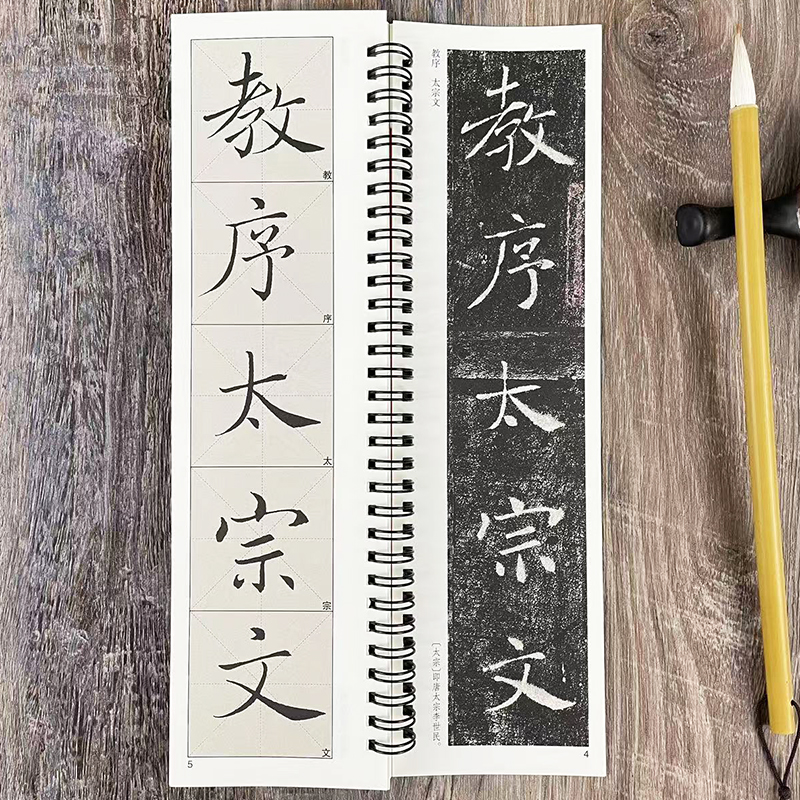 教序太宗文
教
序
太
宗
文
5
教序 太宗文
教序太宗文
〔太宗〕即唐太宗李世民。
4